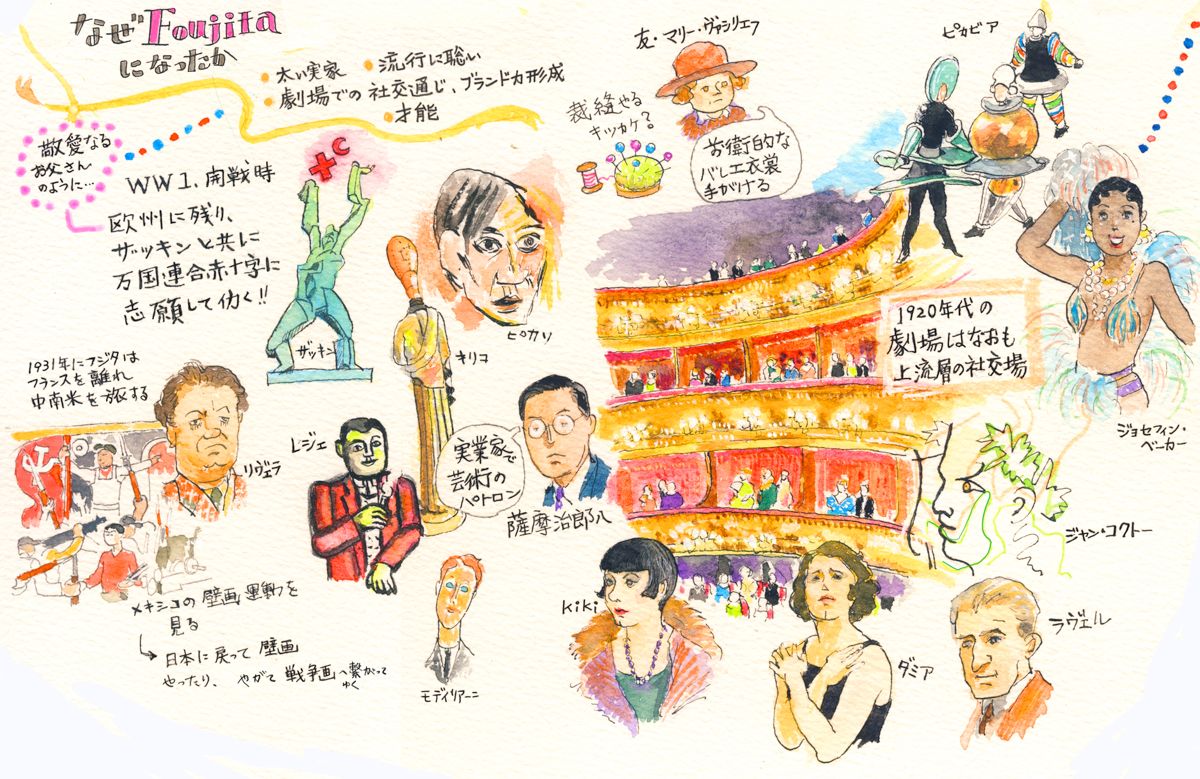 なぜFoujita
になったか
・太い実家
・流行に聡い
・劇場での社交通じ、ブランド力形成
・才能
敬愛なる
お父さん
のように…
WW1、開戦時
欧州に残り、
ザッキンと共に
万国連合赤十字に
志願して働く!!
ザッキン
ピカソ
キリコ
友・マリー・ヴァシリエフ
裁縫やる
キッカケ?
前衛的な
バレエ衣裳
手がける
ピカビア
1920年代の
劇場はなおも
上流層の社交場
ジョセフィン・
ベーカー
1931年にフジタは
フランスを離れ
中南米を旅する
リヴェラ
レジェ
実業家で
芸術の
パトロン
薩摩治郎八
ジャン・コクトー
メキシコの壁画運動を
見る
↳日本に戻って壁画
やったり、やがて戦争画へ繋がって
ゆく
モディリアーニ
KiKi
ダミア
ラヴェル